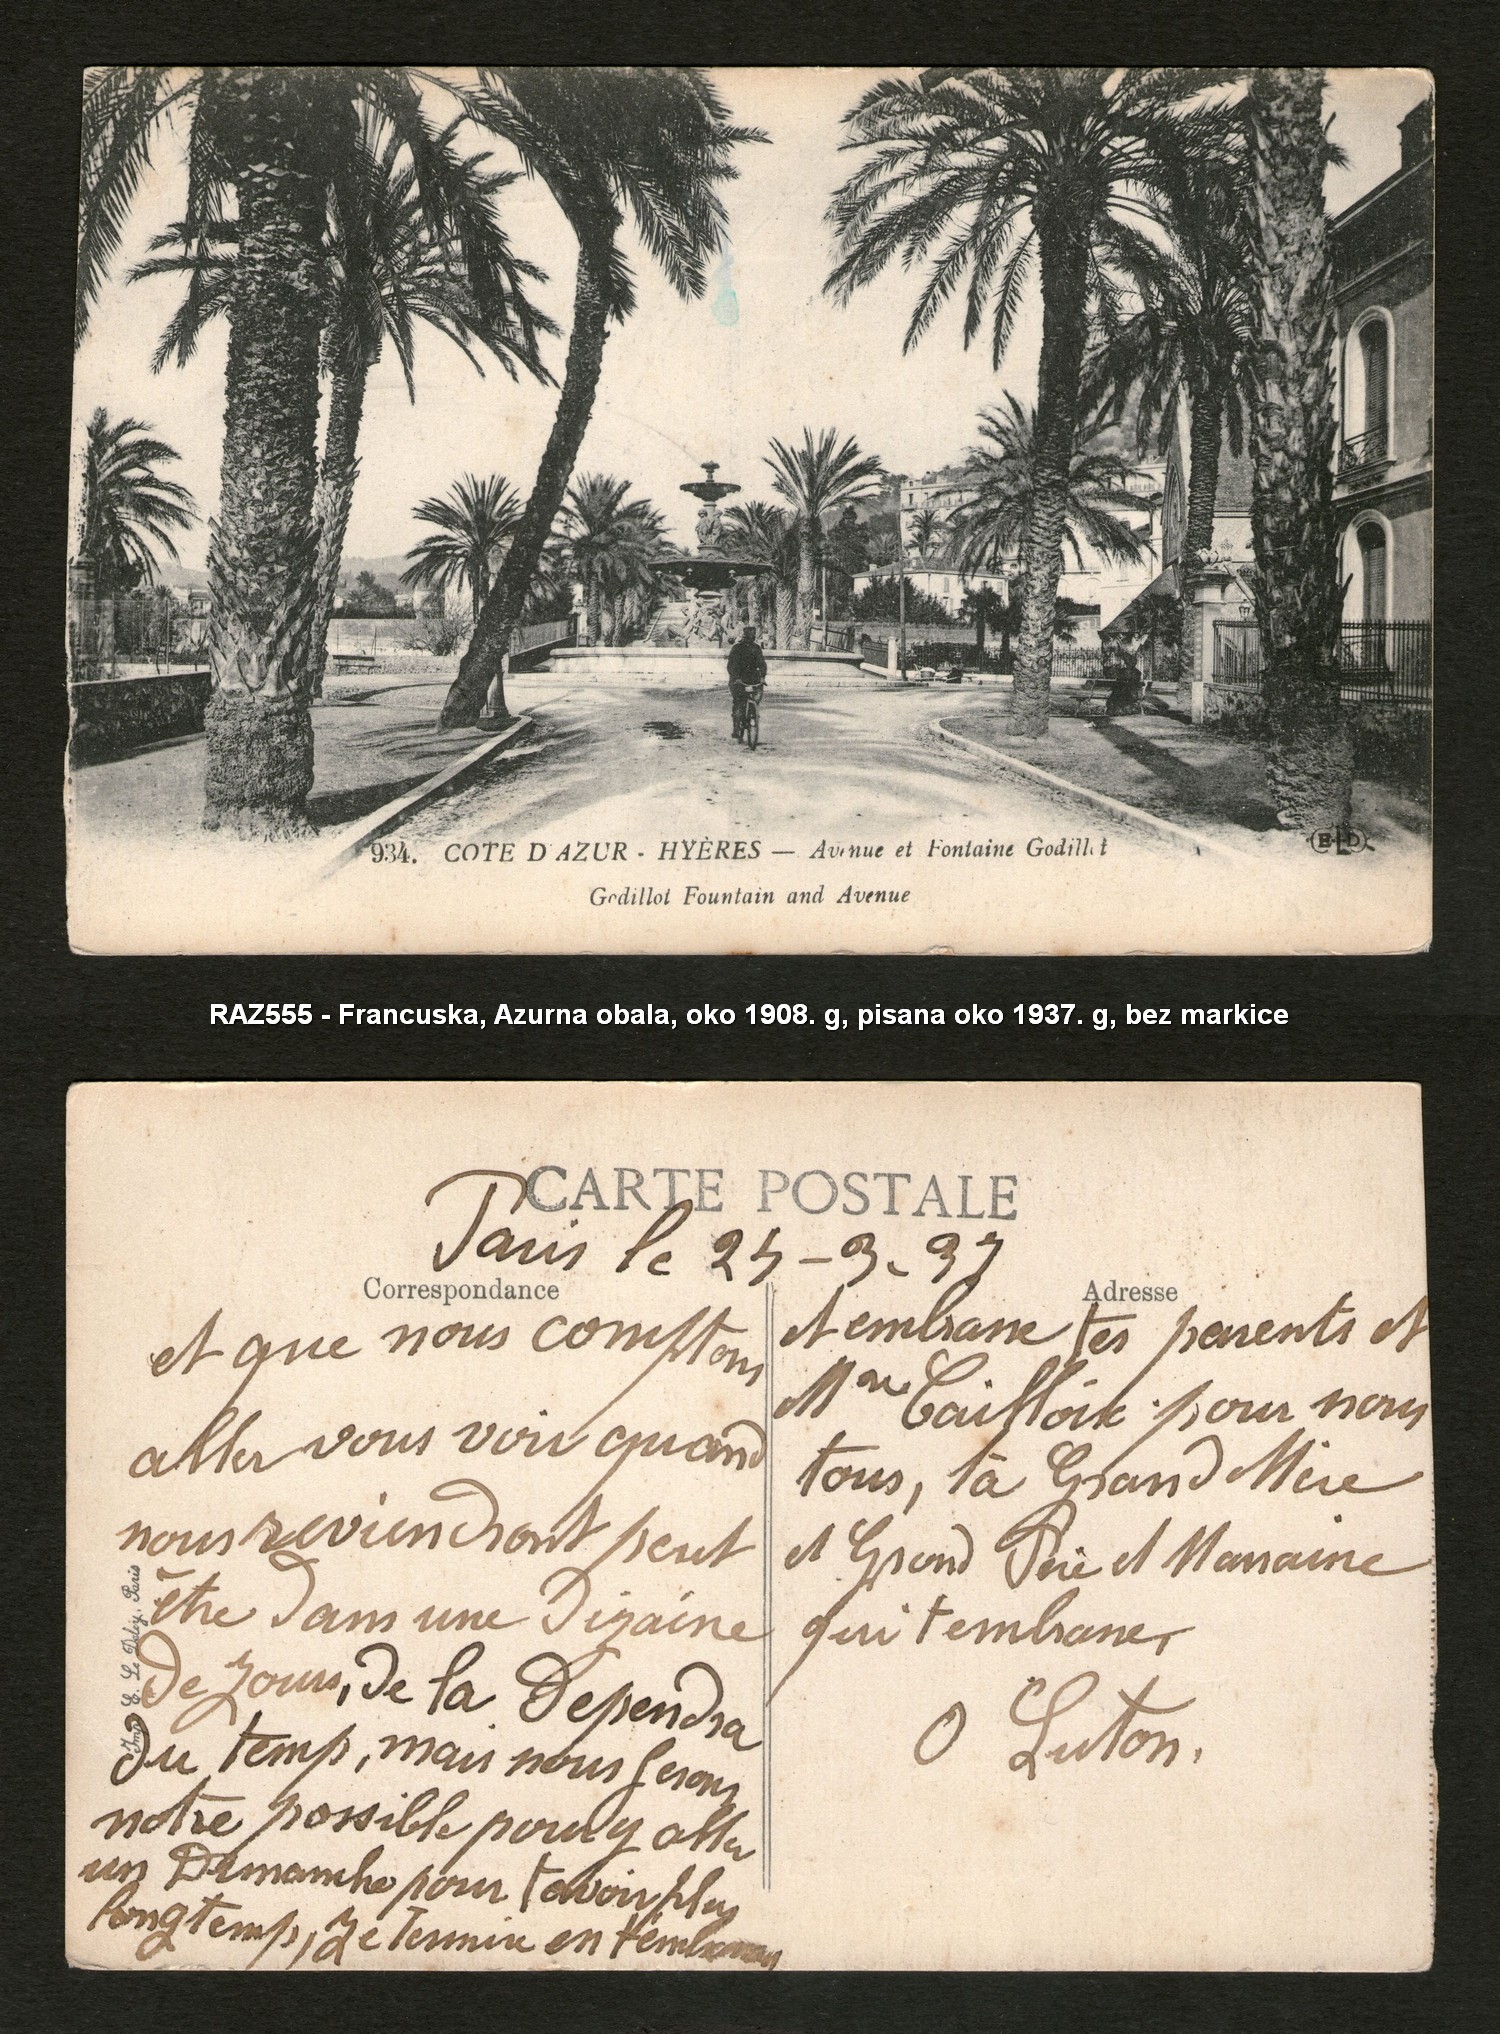 934. COTE D'AZUR - HYÈRES — Avenue et Fontaine Godillot
Godillot Fountain and Avenue
ELD
RAZ555 - Francuska, Azurna obala, oko 1908. g, pisana oko 1937. g, bez markice
CARTE POSTALE
Paris le 25-3-37
Correspondance
et que nous comptons
aller vous voir quand
nous reviendront peut
être dans une Dizaine
De Jours, de la Dependra
Du temp, mais nous ferons
notre possible pour y aller
un Dimanche pour t'avoir plus
longtemp, Je termine en t'embrassant
Imp. E. Le Deley, Paris
Adresse
et embrasse tes parents et
Mme pour nous
tous, ta Grand Mère
et Grand Père et Marraine
qui t'embrasse,
O Luton.